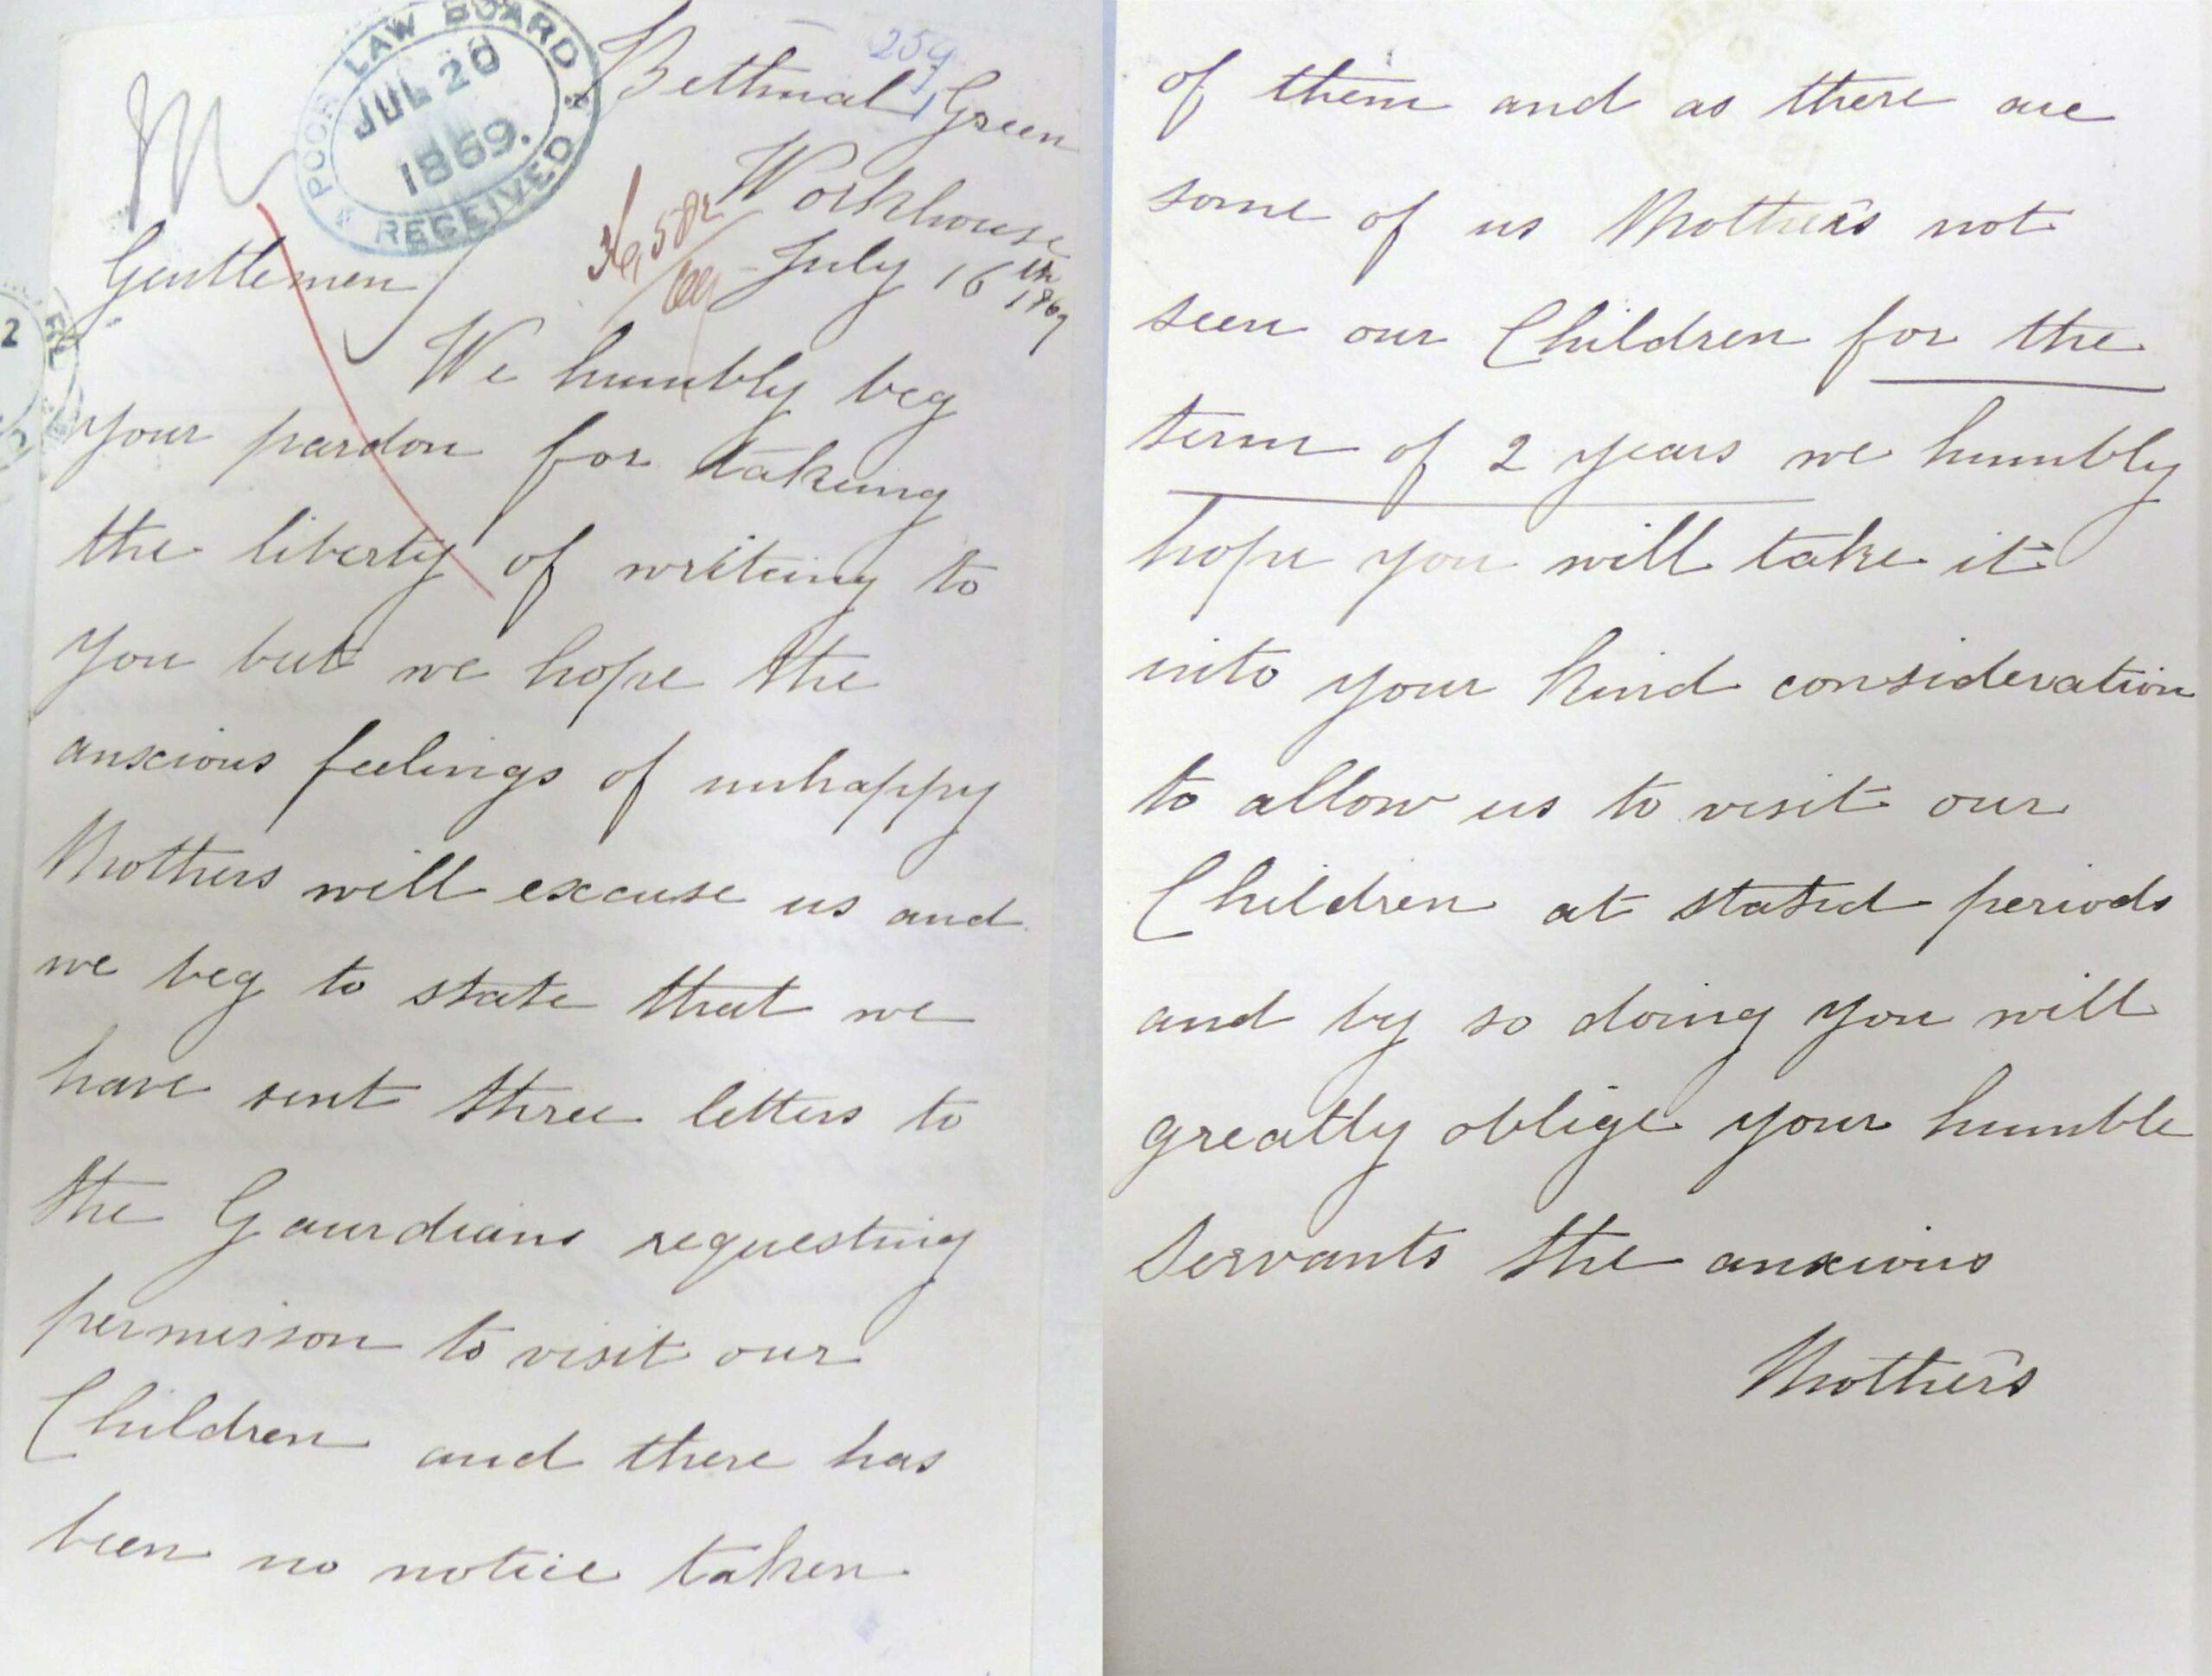 POOR LAW BOARD
JUL 20
1869.
RECEIVED
259
Bethnal Green
Workhouse
36,582
July 16th
1869
Gentlemen
We humbly beg
your pardon for takeing
the liberty of writeing to
you but we hope the
anxcious feelings of unhappy
Mothers will excuse us and
we beg to state that we
have sent three letters to
the Gaurdians requesting
permisson to visit our
Children and there has
been no notice taken
of them and as there are
some of us Mothers not
seen our Children for the
term of 2 years we humbly
hope you will take it
into your kind consideration
to allow us to visit our
Children at stated periods
and by so doing you will
greatly oblige your humble
Servants the anxious
Mothers